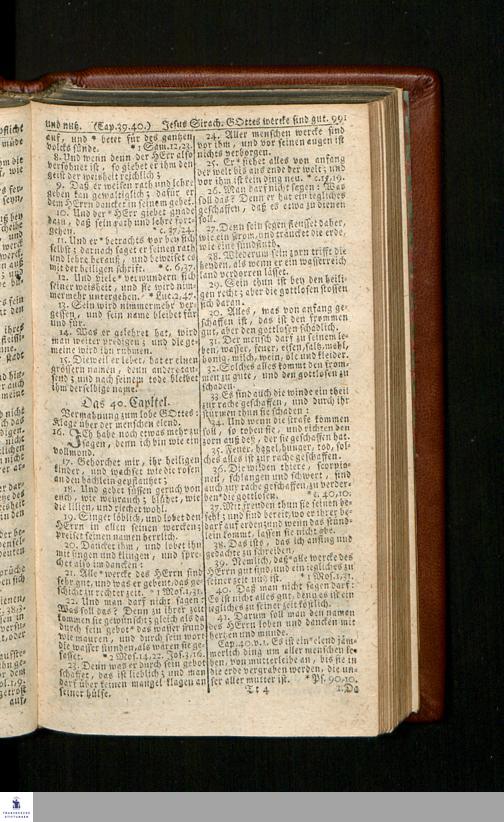 und nutz. (Cap.39.40.) Jesus Sirach. GOttes wercke sind gut. 991
auf, und * betet für des gantzen
volcks sünde. * 1 Sam.12,23.
8. Und wenn denn der HErr also
versöhnet ist, so giebet er ihm den
geist der weisheit reichlich;
9. Daß er weisen rath und lehre
geben kan gewaltiglich; dafür er
dem HErrn dancket in seinem gebet.
10. Und der * HErr giebet gnade
dazu, daß sein rath und lehre fort-
gehen. * c. 37,24.
11. Und er * betrachts vor bey sich
selbst; darnach saget er seinen rath
und lehre heraus, und beweiset es
mit der heiligen schrift. * c. 6,37.
12. Und viele * verwundern sich
seiner weisheit, und sie wird nim-
mermehr untergehen. * Luc.2,47.
13. Sein wird nimmermehr ver-
gessen, und sein name bleibet für
und für.
14. Was er gelehret hat, wird
man weiter predigen; und die ge-
meine wird ihn rühmen.
15. Dieweil er lebet, hat er einen
grössern namen, denn andere tau-
send; und nach seinem tode bleibet
ihm derselbige name.
Das 40. Capitel.
Vermahnung zum lobe GOttes:
Klage über der menschen elend.
16. Ich habe noch etwas mehr zu
sagen, denn ich bin wie ein
vollmond.
17. Gehorchet mir, ihr heiligen
kinder, und wachset wie die rosen
an den bächlein gepflantzet;
18. Und gebet süssen geruch von
euch, wie weyrauch; blühet, wie
die lilien, und riechet wohl.
19. Singet löblich, und lobet den
HErrn in allen seinen wercken;
preiset seinen namen herrlich.
20. Dancket ihm, und lobet ihn
mit singen und klingen, und spre-
chet also im dancken:
21. Alle * wercke des HErrn sind
sehr gut, und was er gebeut, das ge-
schicht zu rechter zeit. * 1 Mos.1,31.
22. Und man darf nicht sagen:
Was soll das? Denn zu ihrer zeit
kommen sie gewünscht; gleich als da
durch sein gebot * das wasser stund
wie mauren, und durch sein wort
die wasser stunden, als wären sie ge-
fasset. * 2 Mos.14,22. Jos.3,16.
23. Denn was er durch sein gebot
schaffet, das ist lieblich; und man
darf über keinen mangel klagen an
seiner hülfe.
24. Aller menschen wercke sind
vor ihm, und vor seinen augen ist
nichts verborgen.
25. Er * siehet alles von anfang
der welt bis ans ende der welt; und
vor ihm ist kein ding neu. * c.15,19.
26. Man darf nicht sagen: Was
soll das? Denn er hat ein iegliches
geschaffen, daß es etwa zu dienen
soll.
27. Denn sein segen fleusset daher,
wie ein strom, und träncket die erde,
wie eine sündfluth.
28. Wiederum sein zorn trifft die
heyden, als wenn er ein wasserreich
land verdorren lässet.
29. Sein thun ist bey den heili-
gen recht; aber die gottlosen stossen
sich daran.
30. Alles, was von anfang ge-
schaffen ist, das ist den frommen
gut, aber den gottlosen schädlich.
31. Der mensch darf zu seinem le-
ben, wasser, feuer, eisen, saltz, mehl,
honig, milch, wein, öle und kleider.
32. Solches alles kommt den from-
men zu gute, und den gottlosen zu
schaden.
33. Es sind auch die winde ein theil
zur rache geschaffen, und durch ihr
stürmen thun sie schaden:
34. Und wenn die strafe kommen
soll, so toben sie, und richten den
zorn aus deß, der sie geschaffen hat.
35. Feuer, hagel, hunger, tod, sol-
ches alles ist zur rache geschaffen.
36. Die wilden thiere, scorpio-
nen, schlangen und schwert, sind
auch zur rache geschaffen, zu verder-
ben * die gottlosen. * c. 40,10.
37. Mit freuden thun sie seinen be-
fehl; und sind bereit, wo er ihr be-
darf auf erden; und wenn das stünd-
lein kommt, lassen sie nicht abe.
38. Das ists, das ich anfing und
gedachte zu schreiben,
39. Nemlich, daß * alle wercke des
HErrn gut sind, und ein iegliches zu
seiner zeit nütz ist. * 1 Mos.1,31.
40. Daß man nicht sagen darf:
Es ist nicht alles gut, denn es ist ein
iegliches zu seiner zeit köstlich.
41. Darum soll man den namen
des HErrn loben und dancken mit
hertzen und munde.
Cap.40. v.1. Es ist ein * elend jäm-
merlich ding um aller menschen le-
ben, von mutterleibe an, bis sie in
die erde vergraben werden, die un-
ser aller mutter ist. * Ps. 90,10.
Tt 4 2. Da
FRANCKESCHE
STIFTUNGEN